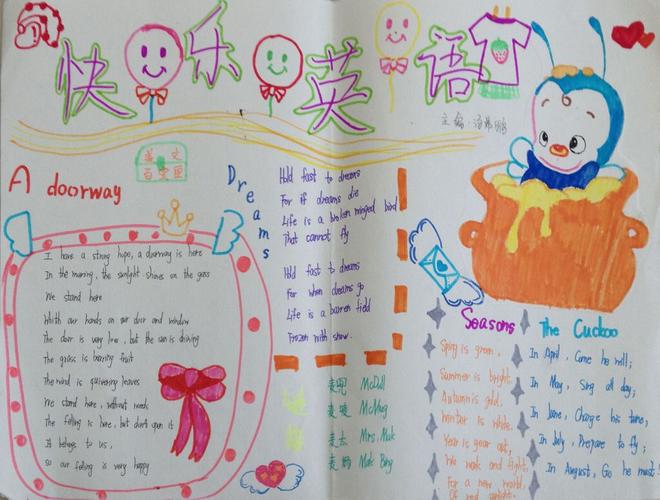 快乐英语
主编:
英文
百宝里
A doorway
I have a strong hope, a doorway is here
In the morning, the sunlight shines on the grass
We stand here
With our hands on our door and window
The door is very low, but the sun is shiving
The grass is bearing fruit
The wind is quivering leaves
We stand here, without words
The falling is here, but don't open it
It belongs to us,
so our feeling is very happy
Dreams
Hold fast to dreams
For if dreams die
Life is a broken winged bird
That cannot fly
Hold fast to dreams
For when dreams go
Life is a barren field
Frozen with show.
麦兜 McDull
麦唛 McMug
麦太 Mrs. Mak
Mak Bing
Seasons
Spring is green,
Summer is bright,
Autumn is gold,
Winter is white.
Year is year out,
We work and fight,
For a new world,
Of red
The Cuckoo
In April, Come he will;
In May, Sing all day;
In June, Change his tune;
In July, Prepare to fly;
In August, Go he must.